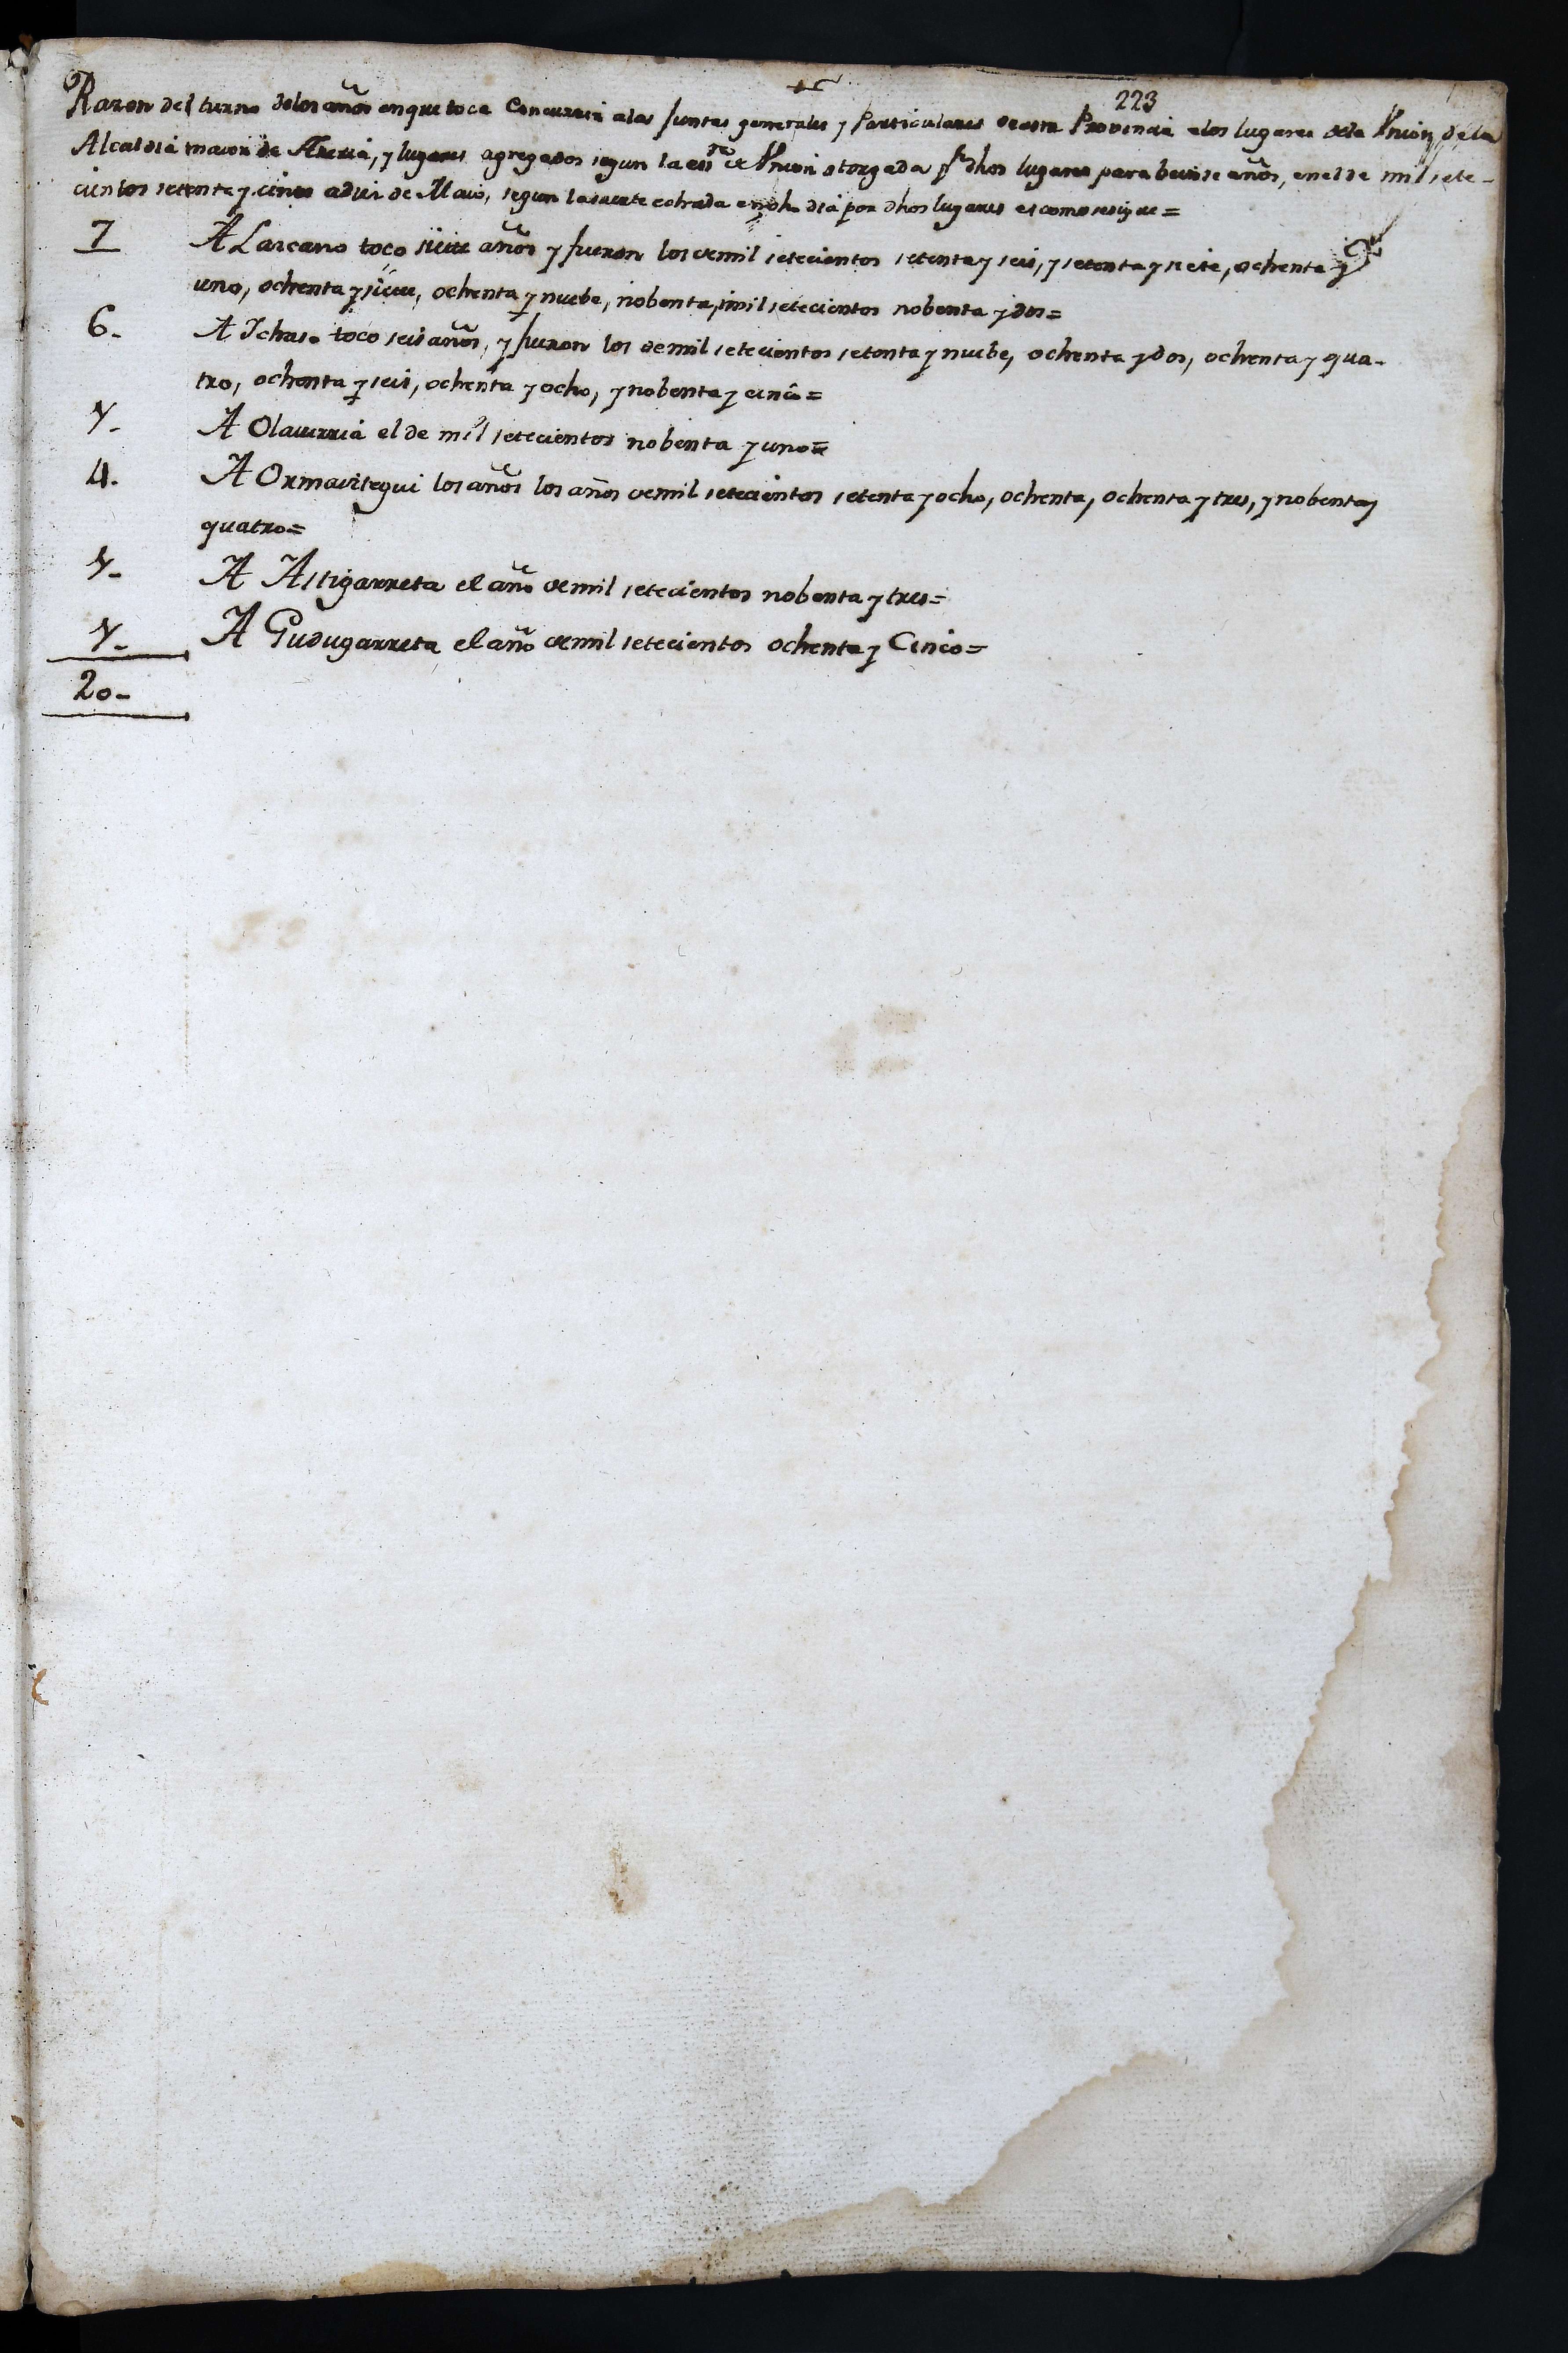 223
Razon del turno delos años enque toca Concurrir alas Juntas generales y Particulares de esta Provincia alos lugares dela Vnion dela
Alcaldia maior de Areria, y lugares agregados segun la ess.ra de Vnion otorgada pr dhos lugares para beinte años, enel de mil sete-
cientos setenta y cinco a diez de Maio, segun la suerte echada en dho dia por dhos lugares es como se sigue =
7 A Lazcano toco siete años y fueron los de mil setecientos setenta y seis, y setenta y siete, ochenta y
uno, ochenta y siete, ochenta y nuebe, nobenta, y mil setecientos nobenta y dos =
6- A Ichaso toco seis años, y fueron los de mil setecientos setenta y nuebe, ochenta y dos, ochenta y qua-
tro, ochenta y seis, ochenta y ocho, y nobenta y cinco =
1- A Olaverria el de mil setecientos nobenta y uno =
4. A Ormaiztegui los años los años de mil setecientos setenta y ocho, ochenta, ochenta y tres, y nobenta y
quatro =
1- A Astigarreta el año de mil setecientos nobenta y tres =
1- A Gudugarreta el año de mil setecientos ochenta y Cinco =
20-